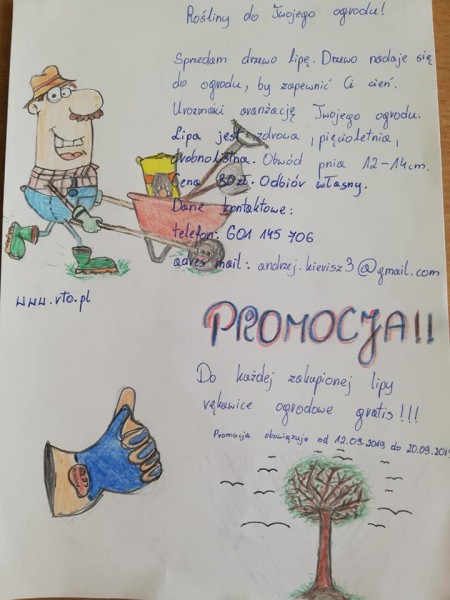 Rośliny do Twojego ogrodu!
Sprzedam drzewo lipę. Drzewo nadaje się
do ogrodu, by zapewnić Ci cień.
Urozmaici aranżację Twojego ogrodu.
Lipa jest zdrowa, pięcioletnia,
drobnolistna. Obwód pnia 12-14cm.
Cena 80zł. Odbiór własny.
Dane kontaktowe:
telefon: 601 145 706
adres mail: andrzej.kievisz3@gmail.com
www.vto.pl
PROMOCJA!!
Do każdej zakupionej lipy
rękawice ogrodowe gratis!!!
Promocja obowiązuje od 12.09.2019 do 20.09.2019